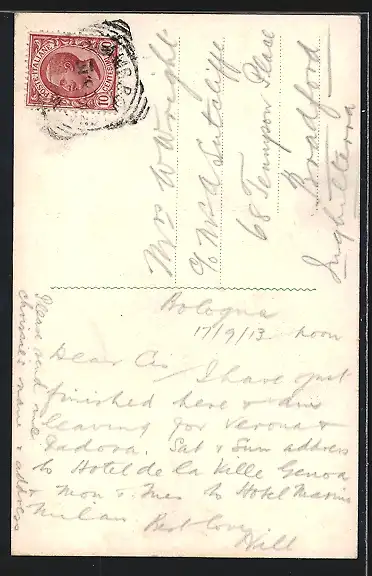 POSTE ITALIANE
10
Mrs W Wright
c/o Mrs Sutcliffe
68 Tennyson Place
Bradford
Inghilterra
Bologna
17/9/13 noon
Dear Cis / I have just
finished here & am
leaving for Verona &
Padova. Sat & Sun address
to Hotel de la Ville Genoa
& Mon & Tues to Hotel
Milan
Best love
Will
Please send me
Chrissie's name & address